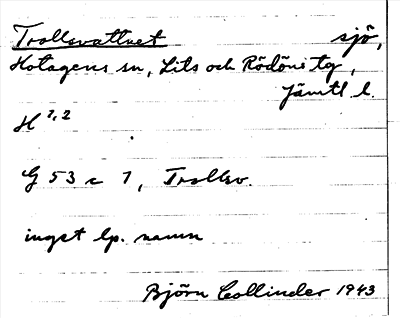 Trollsvattnet sjö,
Hotagens sn, Lits och Rödöns tg,
Jämtl l.
H 1,2
G 53 c 1, Trollsv.
inget lp. namn
Björn Collinder 1943